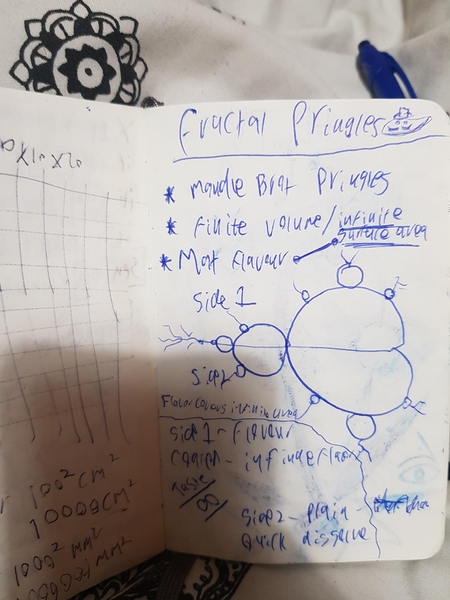 Fractal Pringles
* Mandle Brot Pringles
* Finite volume/infinite
surface area
* Most flavour
side 1
side 2
Flavour covers infinite area
side 1 - flavour
- infinite flavour
Taste
∞
side 2 - plain -
Quick dissolve
100² cm²
10000 cm²
1000² mm²
mm²